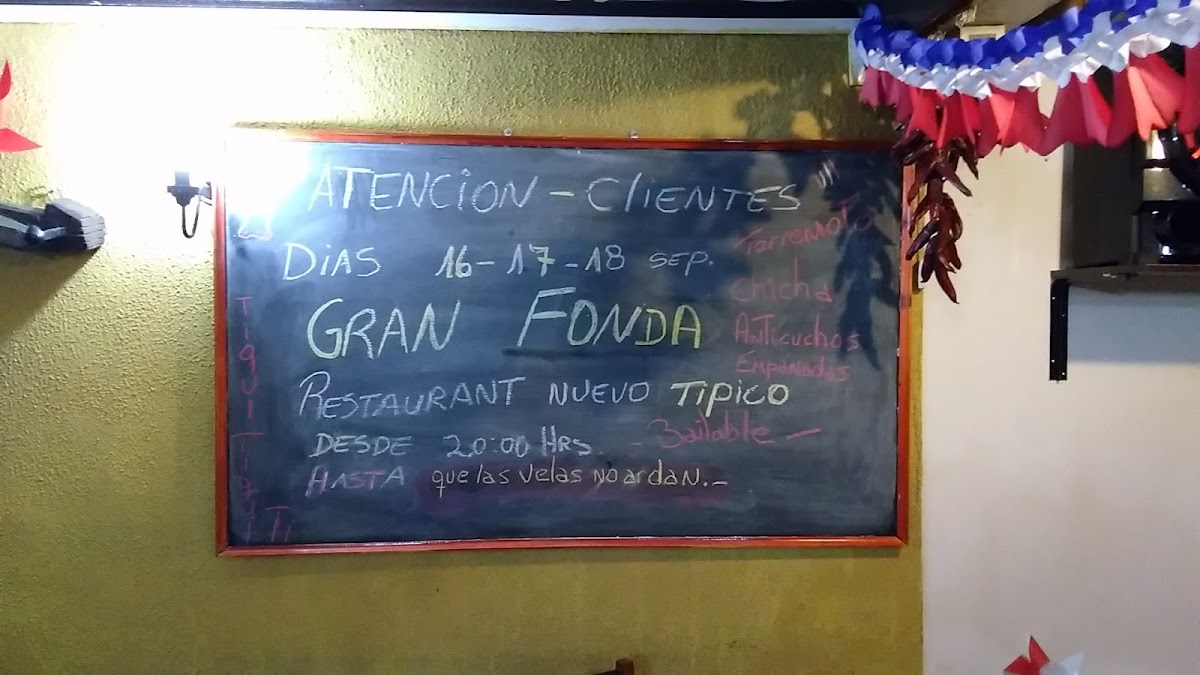 ATENCION - ClIENTES
DiAS 16-17-18 SEP.
GRAN FONDA
RESTAURANT NUEVO TIPICO
DESDE 20:00 HRS. - Bailable -
HASTA que las velas No ardan.-
Terremoto
Chicha
Anticuchos
Empanadas
Tiqui Tiqui
Ti